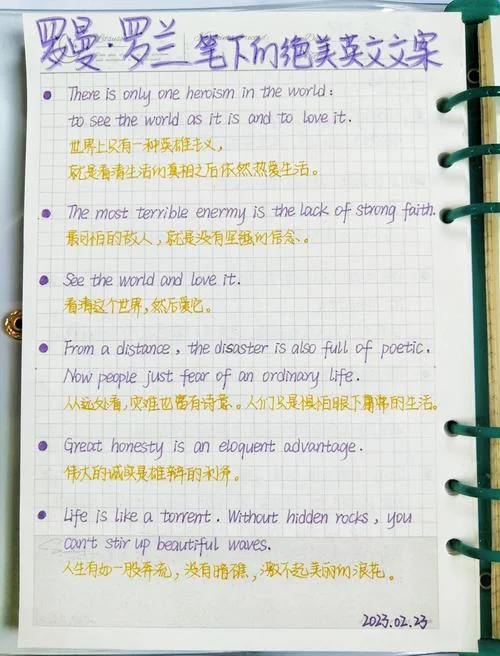 罗曼·罗兰笔下的绝美英文文案
There is only one heroism in the world:
to see the world as it is and to love it.
世界上只有一种英雄主义,
就是看清生活的真相之后依然热爱生活。
The most terrible enermy is the lack of strong faith.
最可怕的敌人,就是没有坚强的信念。
See the world and love it.
看清这个世界,然后爱它。
From a distance, the disaster is also full of poetic.
Now people just fear of an ordinary life.
从远处看,灾难也富有诗意。人们只是惧怕眼下庸常的生活。
Great honesty is an eloquent advantage.
伟大的诚实是雄辩的利斧。
Life is like a torrent. Without hidden rocks, you
can't stir up beautiful waves.
人生有如一股奔流,没有暗礁,激不起美丽的浪花。
2023.02.23